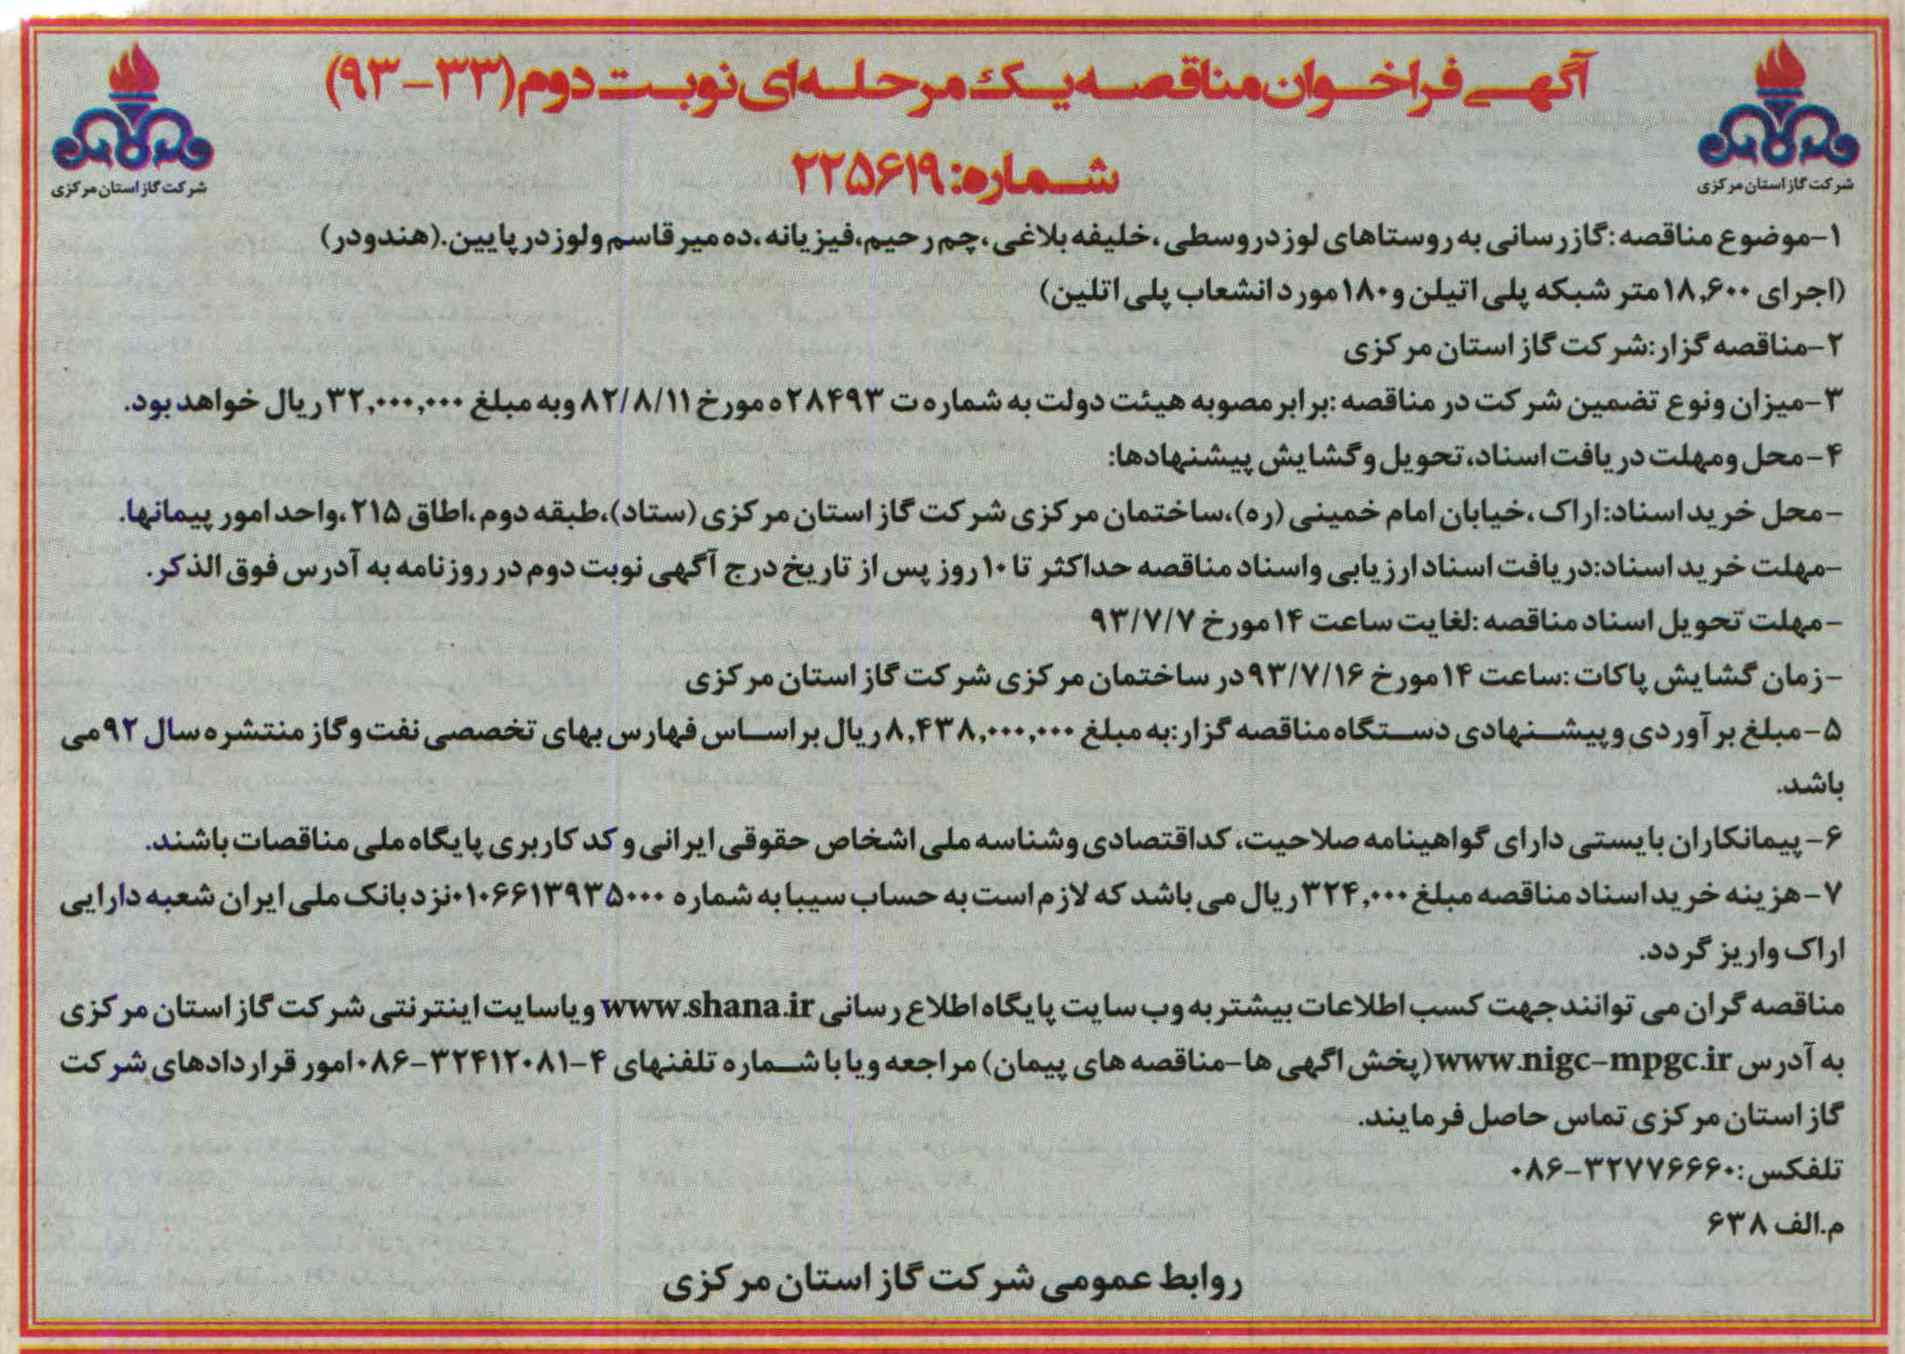 آگهی فراخوان مناقصه یک مرحله‌ای نوبت دوم (۳۳-۹۳)
شماره: ۲۲۵۶۱۹
شرکت گاز استان مرکزی
شرکت گاز استان مرکزی
۱-موضوع مناقصه: گازرسانی به روستاهای لوزدر وسطی، خلیفه بلاغی، چم رحیم، فیزیانه، ده میر قاسم و لوزدر پایین. (هندودر)
(اجرای ۱۸,۶۰۰ متر شبکه پلی اتیلن و ۱۸۰ مورد انشعاب پلی اتلین)
۲-مناقصه گزار: شرکت گاز استان مرکزی
۳-میزان ونوع تضمین شرکت در مناقصه: برابر مصوبه هیئت دولت به شماره ت ۲۸۴۹۳ ه مورخ ۸۲/۸/۱۱ وبه مبلغ ۳۲,۰۰۰,۰۰۰ ریال خواهد بود.
۴-محل ومهلت دریافت اسناد، تحویل وگشایش پیشنهادها:
-محل خرید اسناد: اراک، خیابان امام خمینی (ره)، ساختمان مرکزی شرکت گاز استان مرکزی (ستاد)، طبقه دوم، اطاق ۲۱۵، واحد امور پیمانها.
-مهلت خرید اسناد: دریافت اسناد ارزیابی واسناد مناقصه حداکثر تا ۱۰ روز پس از تاریخ درج آگهی نوبت دوم در روزنامه به آدرس فوق الذکر.
-مهلت تحویل اسناد مناقصه: لغایت ساعت ۱۴ مورخ ۹۳/۷/۷
-زمان گشایش پاکات: ساعت ۱۴ مورخ ۹۳/۷/۱۶ در ساختمان مرکزی شرکت گاز استان مرکزی
۵-مبلغ برآوردی وپیشنهادی دستگاه مناقصه گزار: به مبلغ ۸,۴۳۸,۰۰۰,۰۰۰ ریال براساس فهارس بهای تخصصی نفت وگاز منتشره سال ۹۲ می
باشد.
۶-پیمانکاران بایستی دارای گواهینامه صلاحیت، کداقتصادی وشناسه ملی اشخاص حقوقی ایرانی و کد کاربری پایگاه ملی مناقصات باشند.
۷-هزینه خرید اسناد مناقصه مبلغ ۳۲۴,۰۰۰ ریال می باشد که لازم است به حساب سیبا به شماره ۰۱۰۶۶۱۳۹۳۵۰۰۰ نزد بانک ملی ایران شعبه دارایی
اراک واریز گردد.
مناقصه گران می توانند جهت کسب اطلاعات بیشتر به وب سایت پایگاه اطلاع رسانی www.shana.ir ویا سایت اینترنتی شرکت گاز استان مرکزی
به آدرس www.nigc-mpgc.ir (پخش اگهی ها-مناقصه های پیمان) مراجعه ویا با شماره تلفنهای ۴-۳۲۴۱۲۰۸۱-۰۸۶ امور قراردادهای شرکت
گاز استان مرکزی تماس حاصل فرمایند.
تلفکس: ۳۲۷۷۶۶۶۰-۰۸۶
م.الف ۶۳۸
روابط عمومی شرکت گاز استان مرکزی